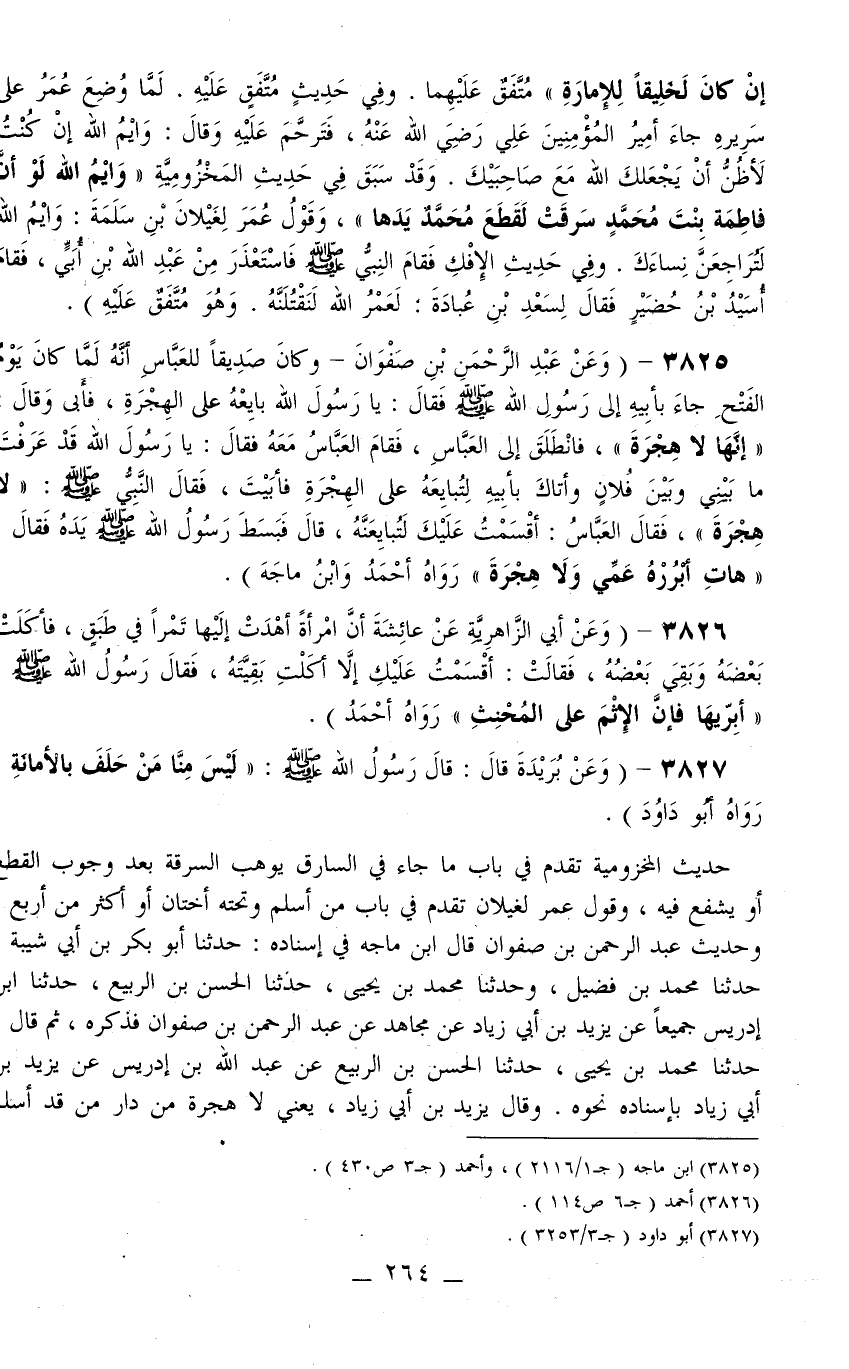 إنْ كانَ لَخَلِيقاً لِلإِمارَةِ » مُتَّفَقٌ عَلَيْهِما . وفِي حَدِيثٍ مُتَّفَقٍ عَلَيْهِ . لَمَّا وُضِعَ عُمَرُ على
سَرِيرِهِ جاءَ أمِيرُ المُؤْمِنِينَ عَلِي رَضِيَ الله عَنْهُ ، فَتَرحَّمَ عَلَيْهِ وَقالَ : وَايْمُ الله إنْ كُنْتُ
لَأظُنُّ أنْ يَجْعَلكَ الله مَعَ صَاحِبَيْكَ . وَقَدْ سَبَقَ فِي حَدِيثِ المَخْزُومِيَّةِ « وَايْمُ الله لَوْ أنَّ
فاطِمَة بِنْتَ مُحَمَّدٍ سَرقَتْ لَقَطَعَ مُحَمَّدٌ يَدَها » ، وَقَوْلُ عُمَرَ لِغَيْلانَ بْنِ سَلَمَةَ : وَايْمُ الله
لَتُرَاجِعَنَّ نِساءَكَ . وفِي حَدِيثِ الإِفْكِ فَقامَ النِبيُّ ﷺ فَاسْتَعْذَرَ مِنْ عَبْدِ الله بْنِ أُبَيٍّ ، فَقامَ
أُسَيْدُ بْنُ حُضَيْرٍ فَقالَ لِسَعْدِ بْنِ عُبادَةَ : لَعَمْرُ الله لَنَقْتُلَنَّهُ . وَهُوَ مُتَّفَقٌ عَلَيْهِ ) .
٣٨٢٥ – ( وَعَنْ عَبْدِ الرَّحْمَنِ بْنِ صَفْوَانَ – وكانَ صَدِيقاً للعَبَّاسِ أنَّهُ لَمَّا كانَ يَوْمُ
الفَتْحِ جاءَ بأبيهِ إلى رَسُولِ الله ﷺ فَقالَ : يا رَسُولَ الله بايِعْهُ على الهِجْرَةِ ، فأَبى وَقالَ :
« إنَّهَا لا هِجْرَةَ » ، فانْطَلَقَ إلى العَبَّاسِ ، فَقامَ العَبَّاسُ مَعَهُ فقالَ : يا رَسُولَ الله قَدْ عَرَفْتَ
ما بَيْنِي وَبَيْنَ فُلانٍ وأتاكَ بأبيهِ لِتُبايِعَهُ على الهِجْرَةِ فأبَيْتَ ، فَقالَ النَّبيُّ ﷺ : « لا
هِجْرَةَ » ، فَقالَ العَبَّاسُ : أقْسَمْتُ عَلَيْكَ لَتُبايِعَنَّهُ ، قالَ فَبَسَطَ رَسُولُ الله ﷺ يَدَهُ فَقالَ
« هاتِ أبْرَرْهُ عَمِّي وَلَا هِجْرَةَ » رَوَاهُ أحْمَدُ وَابْنُ ماجَهَ ) .
٣٨٢٦ – ( وَعَنْ أبي الزَّاهِريَّةِ عَنْ عائِشَةَ أنَّ امْرأةً أهْدَتْ إلَيْها تَمْراً في طَبَقٍ ، فأكَلَتْ
بَعْضَهُ وَبَقِيَ بَعْضُهُ ، فَقالَتْ : أقْسَمْتُ عَلَيْكِ إلَّا أكَلْتِ بَقِيَّتَهُ ، فَقالَ رَسُولُ الله ﷺ
« أبِرّيهَا فإنَّ الإثْمَ على المُحْنِثِ » رَوَاهُ أحْمَدُ ) .
٣٨٢٧ – ( وَعَنْ بُرَيْدَةَ قالَ : قالَ رَسُولُ الله ﷺ : « لَيْسَ مِنَّا مَنْ حَلَفَ بالأمانَةِ
رَوَاهُ أبُو دَاوُدَ ) .
حديث المخزومية تقدم في باب ما جاء في السارق يوهب السرقة بعد وجوب القطع
أو يشفع فيه ، وقول عمر لغيلان تقدم في باب من أسلم وتحته أختان أو أكثر من أربع
وحديث عبد الرحمن بن صفوان قال ابن ماجه في إسناده : حدثنا أبو بكر بن أبي شيبة
حدثنا محمد بن فضيل ، وحدثنا محمد بن يحيى ، حدثنا الحسن بن الربيع ، حدثنا ابن
إدريس جميعاً عن يزيد بن أبي زياد عن مجاهد عن عبد الرحمن بن صفوان فذكره ، ثم قال
حدثنا محمد بن يحيى ، حدثنا الحسن بن الربيع عن عبد الله بن إدريس عن يزيد بن
أبي زياد بإسناده نحوه . وقال يزيد بن أبي زياد ، يعني لا هجرة من دار من قد أسلم
(٣٨٢٥) ابن ماجه ( جـ٢١١٦/١ ) ، وأحمد ( جـ٣ ص٤٣٠ ) .
(٣٨٢٦) أحمد ( جـ٦ ص١١٤ ) .
(٣٨٢٧) أبو داود ( جـ٣٢٥٣/٣ ) .
— ٢٦٤ —